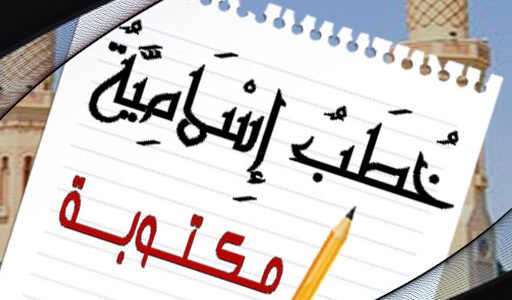 خُطَبٌ إِسْلَامِيَّةٌ
مكتوبة